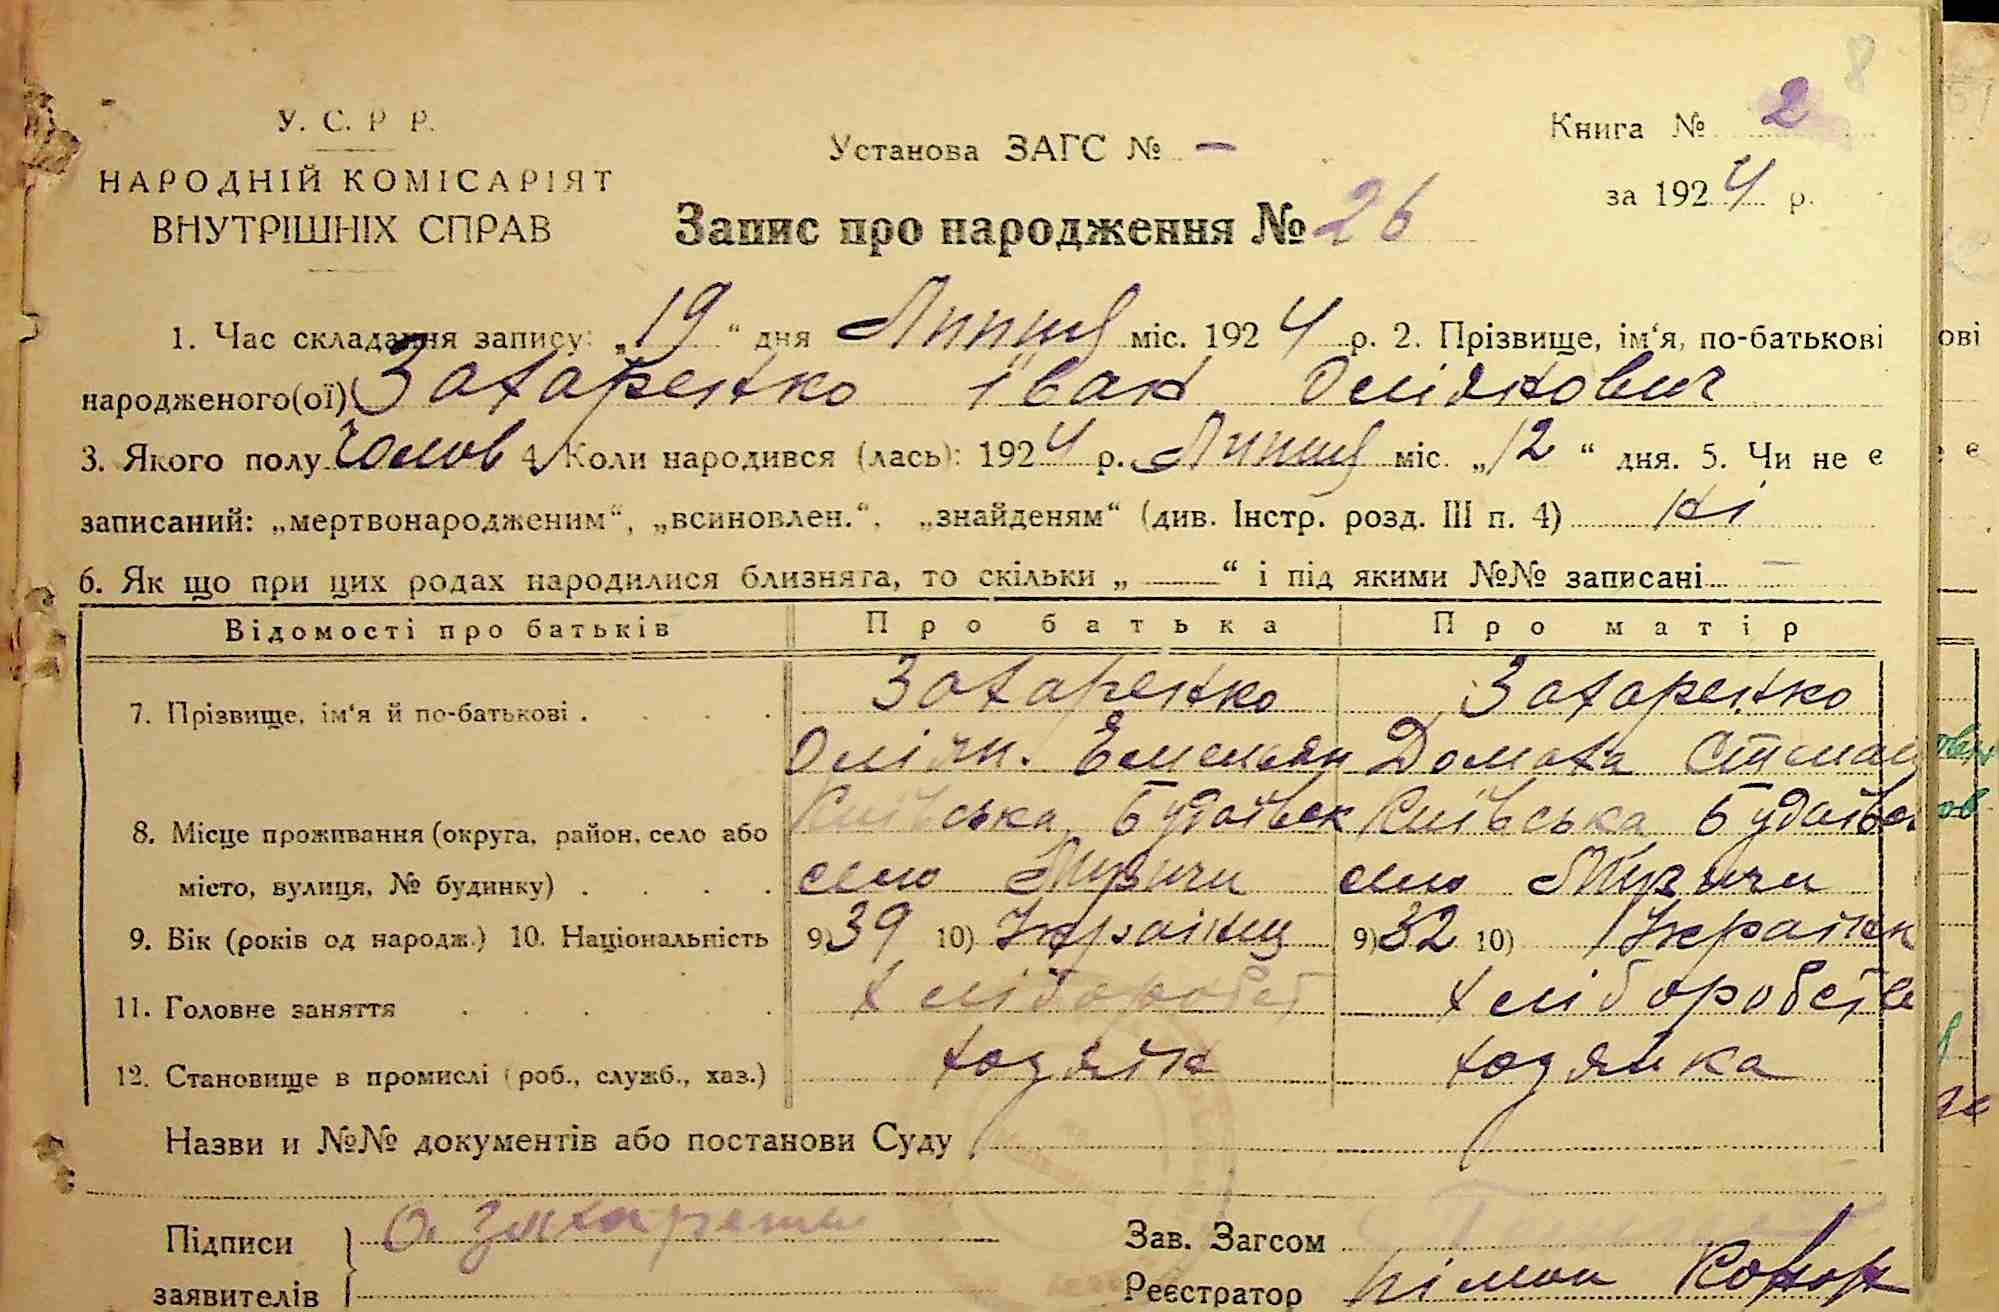 8
У. С. Р Р.
НАРОДНІЙ КОМІСАРІЯТ
ВНУТРІШНІХ СПРАВ
Установа ЗАГС № —
Книга № 2
за 1924 р.
Запис про народження № 26
1. Час складання запису: „19“ дня Липця міс. 1924 р. 2. Прізвище, ім‘я, по-батькові
народженого(ої) Захаренко Іван Оліянович
3. Якого полу чолов 4 Коли народився (лась): 1924 р. Липця міс. „12“ дня. 5. Чи не є
записаний: „мертвонародженим“, „всиновлен.“, „знайденям“ (див. Інстр. розд. III п. 4) ні
6. Як що при цих родах народилися близнята, то скільки „ —— “ і під якими №№ записані —
Відомості про батьків Про батька Про матір
7. Прізвище, ім‘я й по-батькові . Захаренко Захаренко
Оліян. Емельян Домаха
8. Місце проживання (округа, район, село або Київська Будаївск Київська Будаївс
місто, вулиця, № будинку) . село Музичи село Музичи
9. Вік (років од народж.) 10. Національність 9) 39 10) Українц 9) 32 10) Українк
11. Головне заняття Хліборобст Хліборобств
12. Становище в промислі (роб., служб., хаз.) ходяїн ходяйка
Назви и №№ документів або постанови Суду
Підписи О Захаренк Зав. Загсом
заявителів Реєстратор